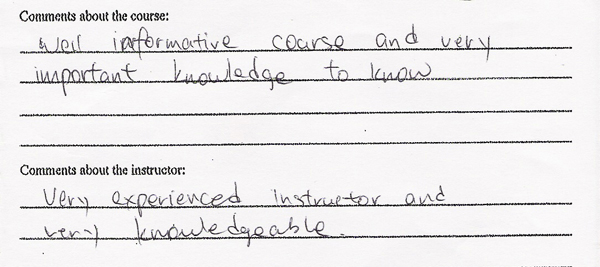 Comments about the course:
well informative coarse and very
important knowledge to know
Comments about the instructor:
Very experienced instructor and
very knowledgeable.